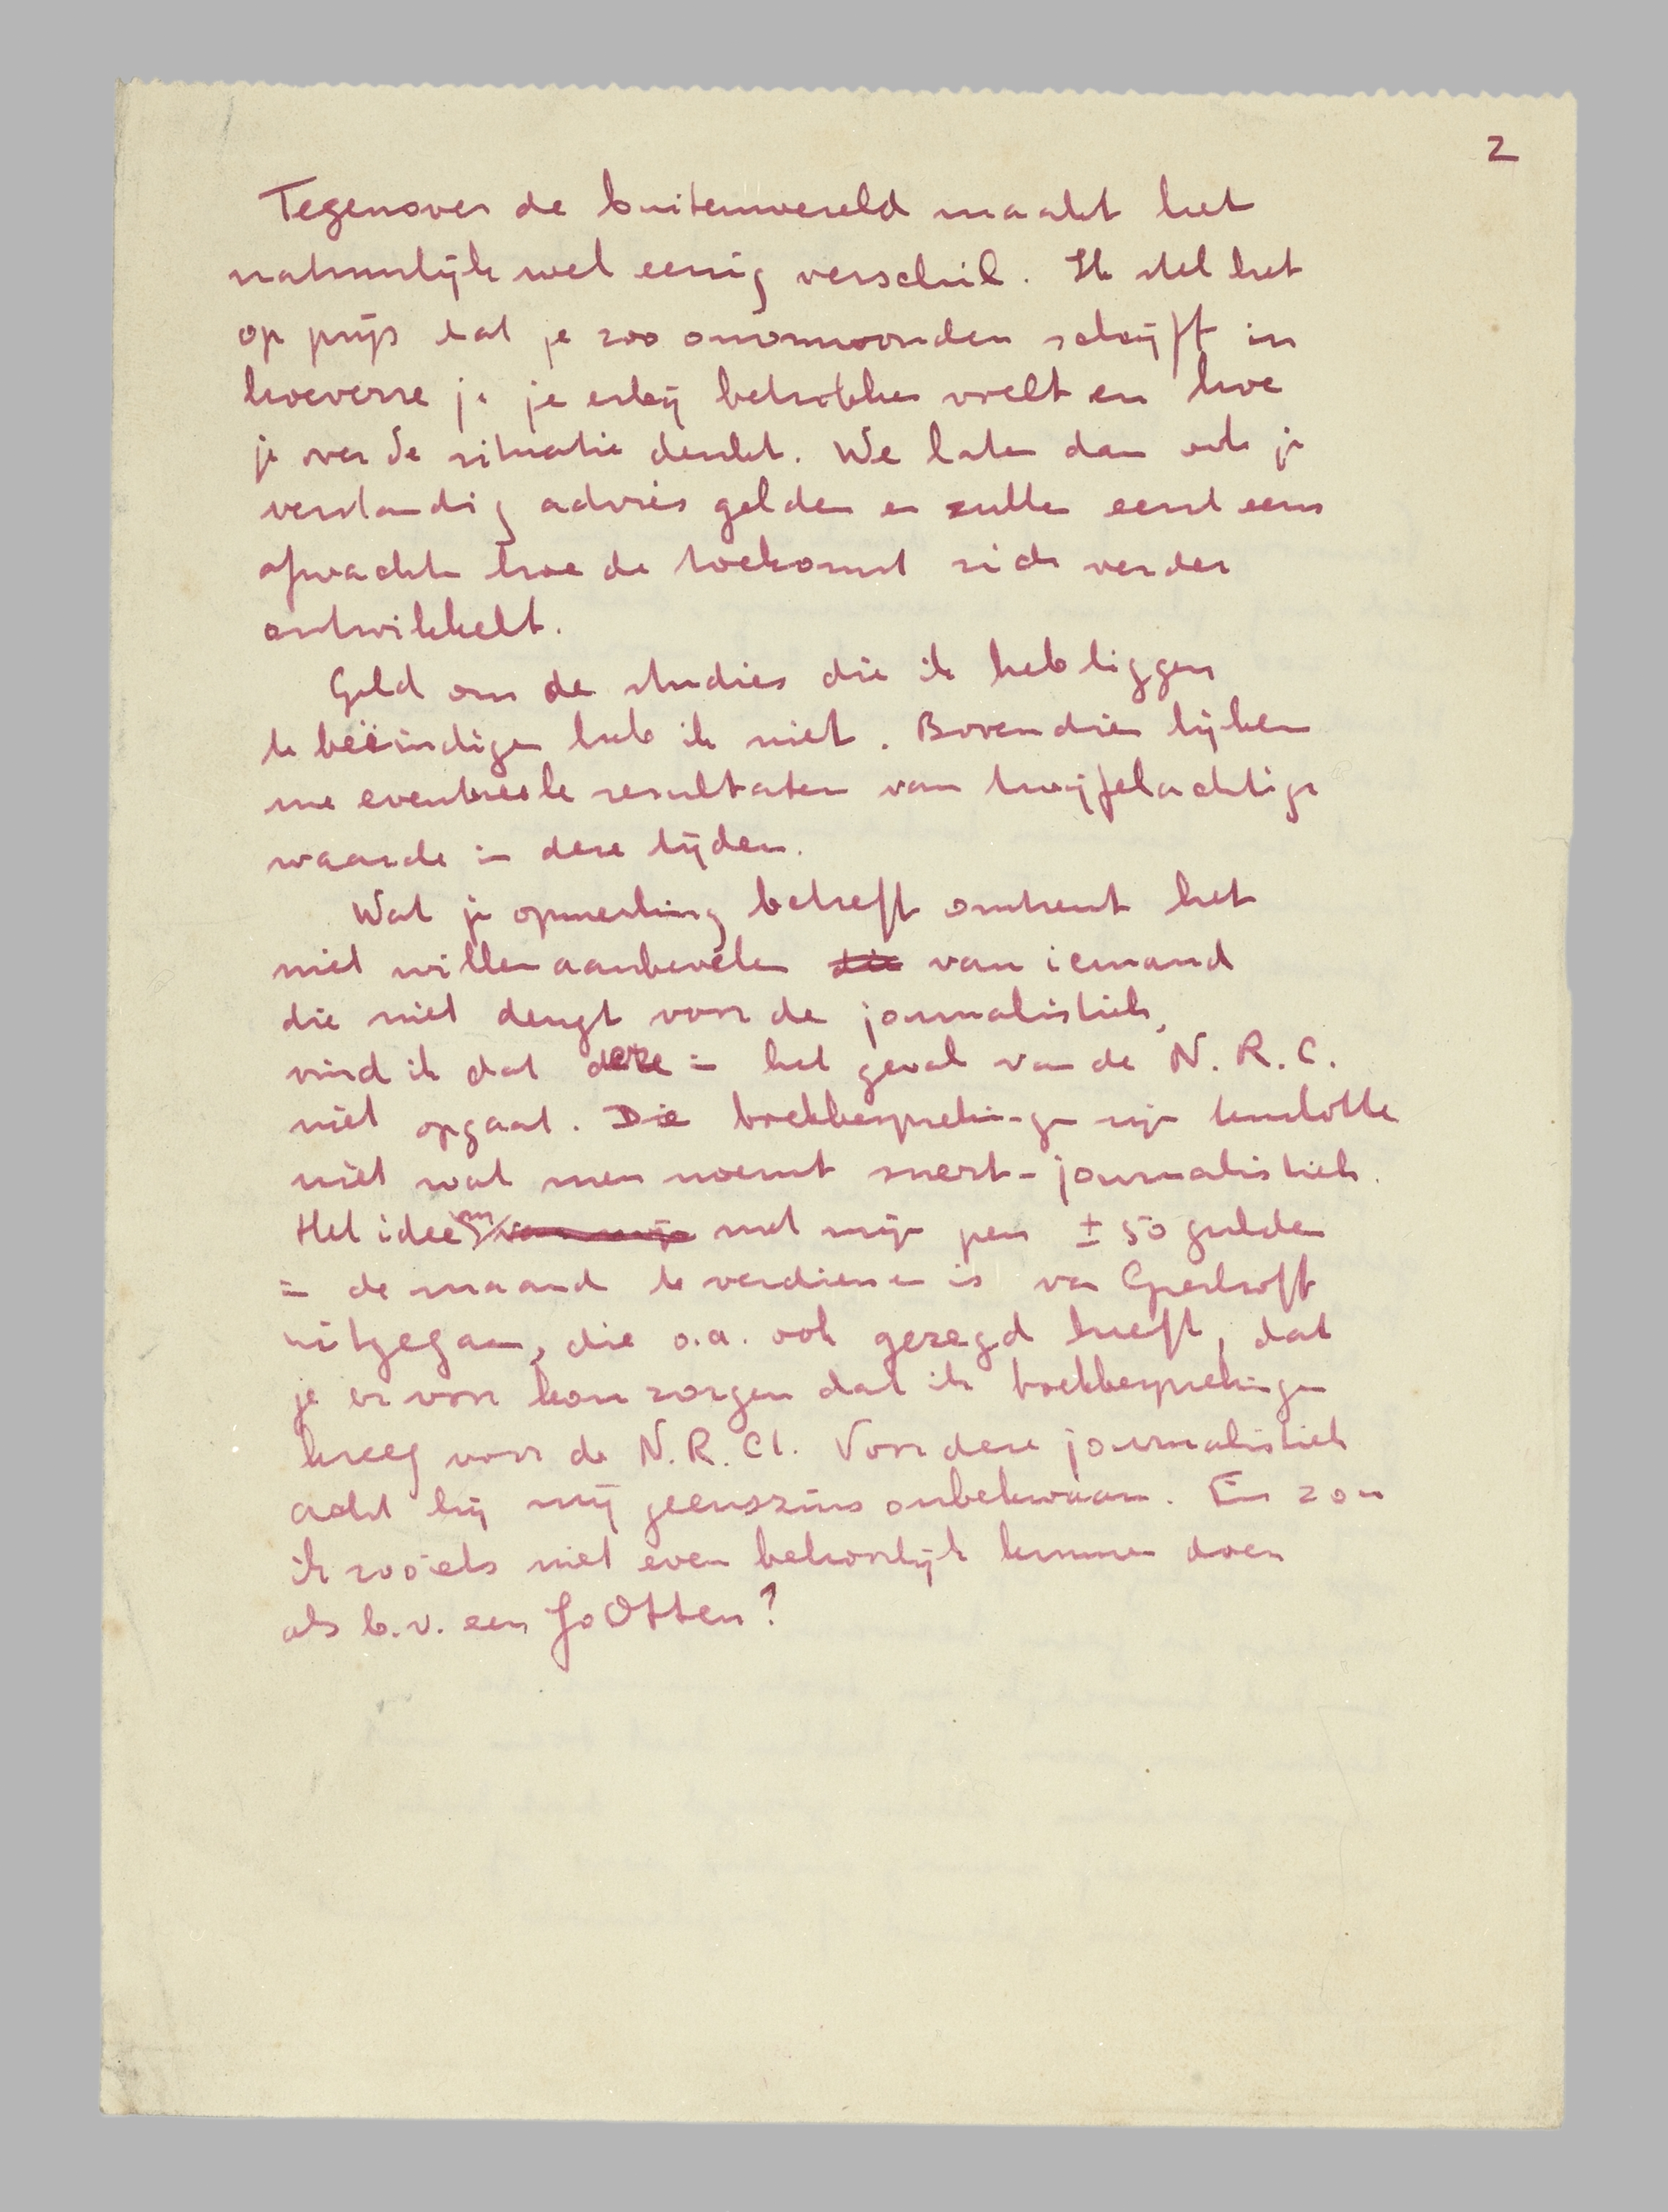 2
Tegenover de buitenwereld maakt het
natuurlijk wel eenig verschil. Ik stel het
op prijs dat je zoo onomwonden schrijft in
hoeverre je je erbij betrokken voelt en hoe
je over de situatie denkt. We laten dan ook je
verstandig advies gelden en zullen eerst eens
afwachten hoe de toekomst zich verder
ontwikkelt.
Geld om de studies die ik heb liggen
te beëindigen heb ik niet. Bovendien lijken
me eventueele resultaten van twijfelachtige
waarde in deze tijden.
Wat je opmerking betreft omtrent het
niet willen aanbevelen die van iemand
die niet deugt voor de journalistiek,
vind ik dat deze in het geval van de N. R. C.
niet opgaat. Die boekbesprekingen zijn tenslotte
niet wat men noemt snert-journalistiek.
Het idee om van mijn met mijn pen ± 50 gulden
in de maand te verdienen is van Greshoff
uitgegaan, die o.a. ook gezegd heeft, dat
je er voor kon zorgen dat ik boekbesprekingen
kreeg voor de N.R.Ct. Voor deze journalistiek
acht hij mij geenszins onbekwaam. En zou
ik zooiets niet even behoorlijk kunnen doen
als b.v. een Jo Otten?